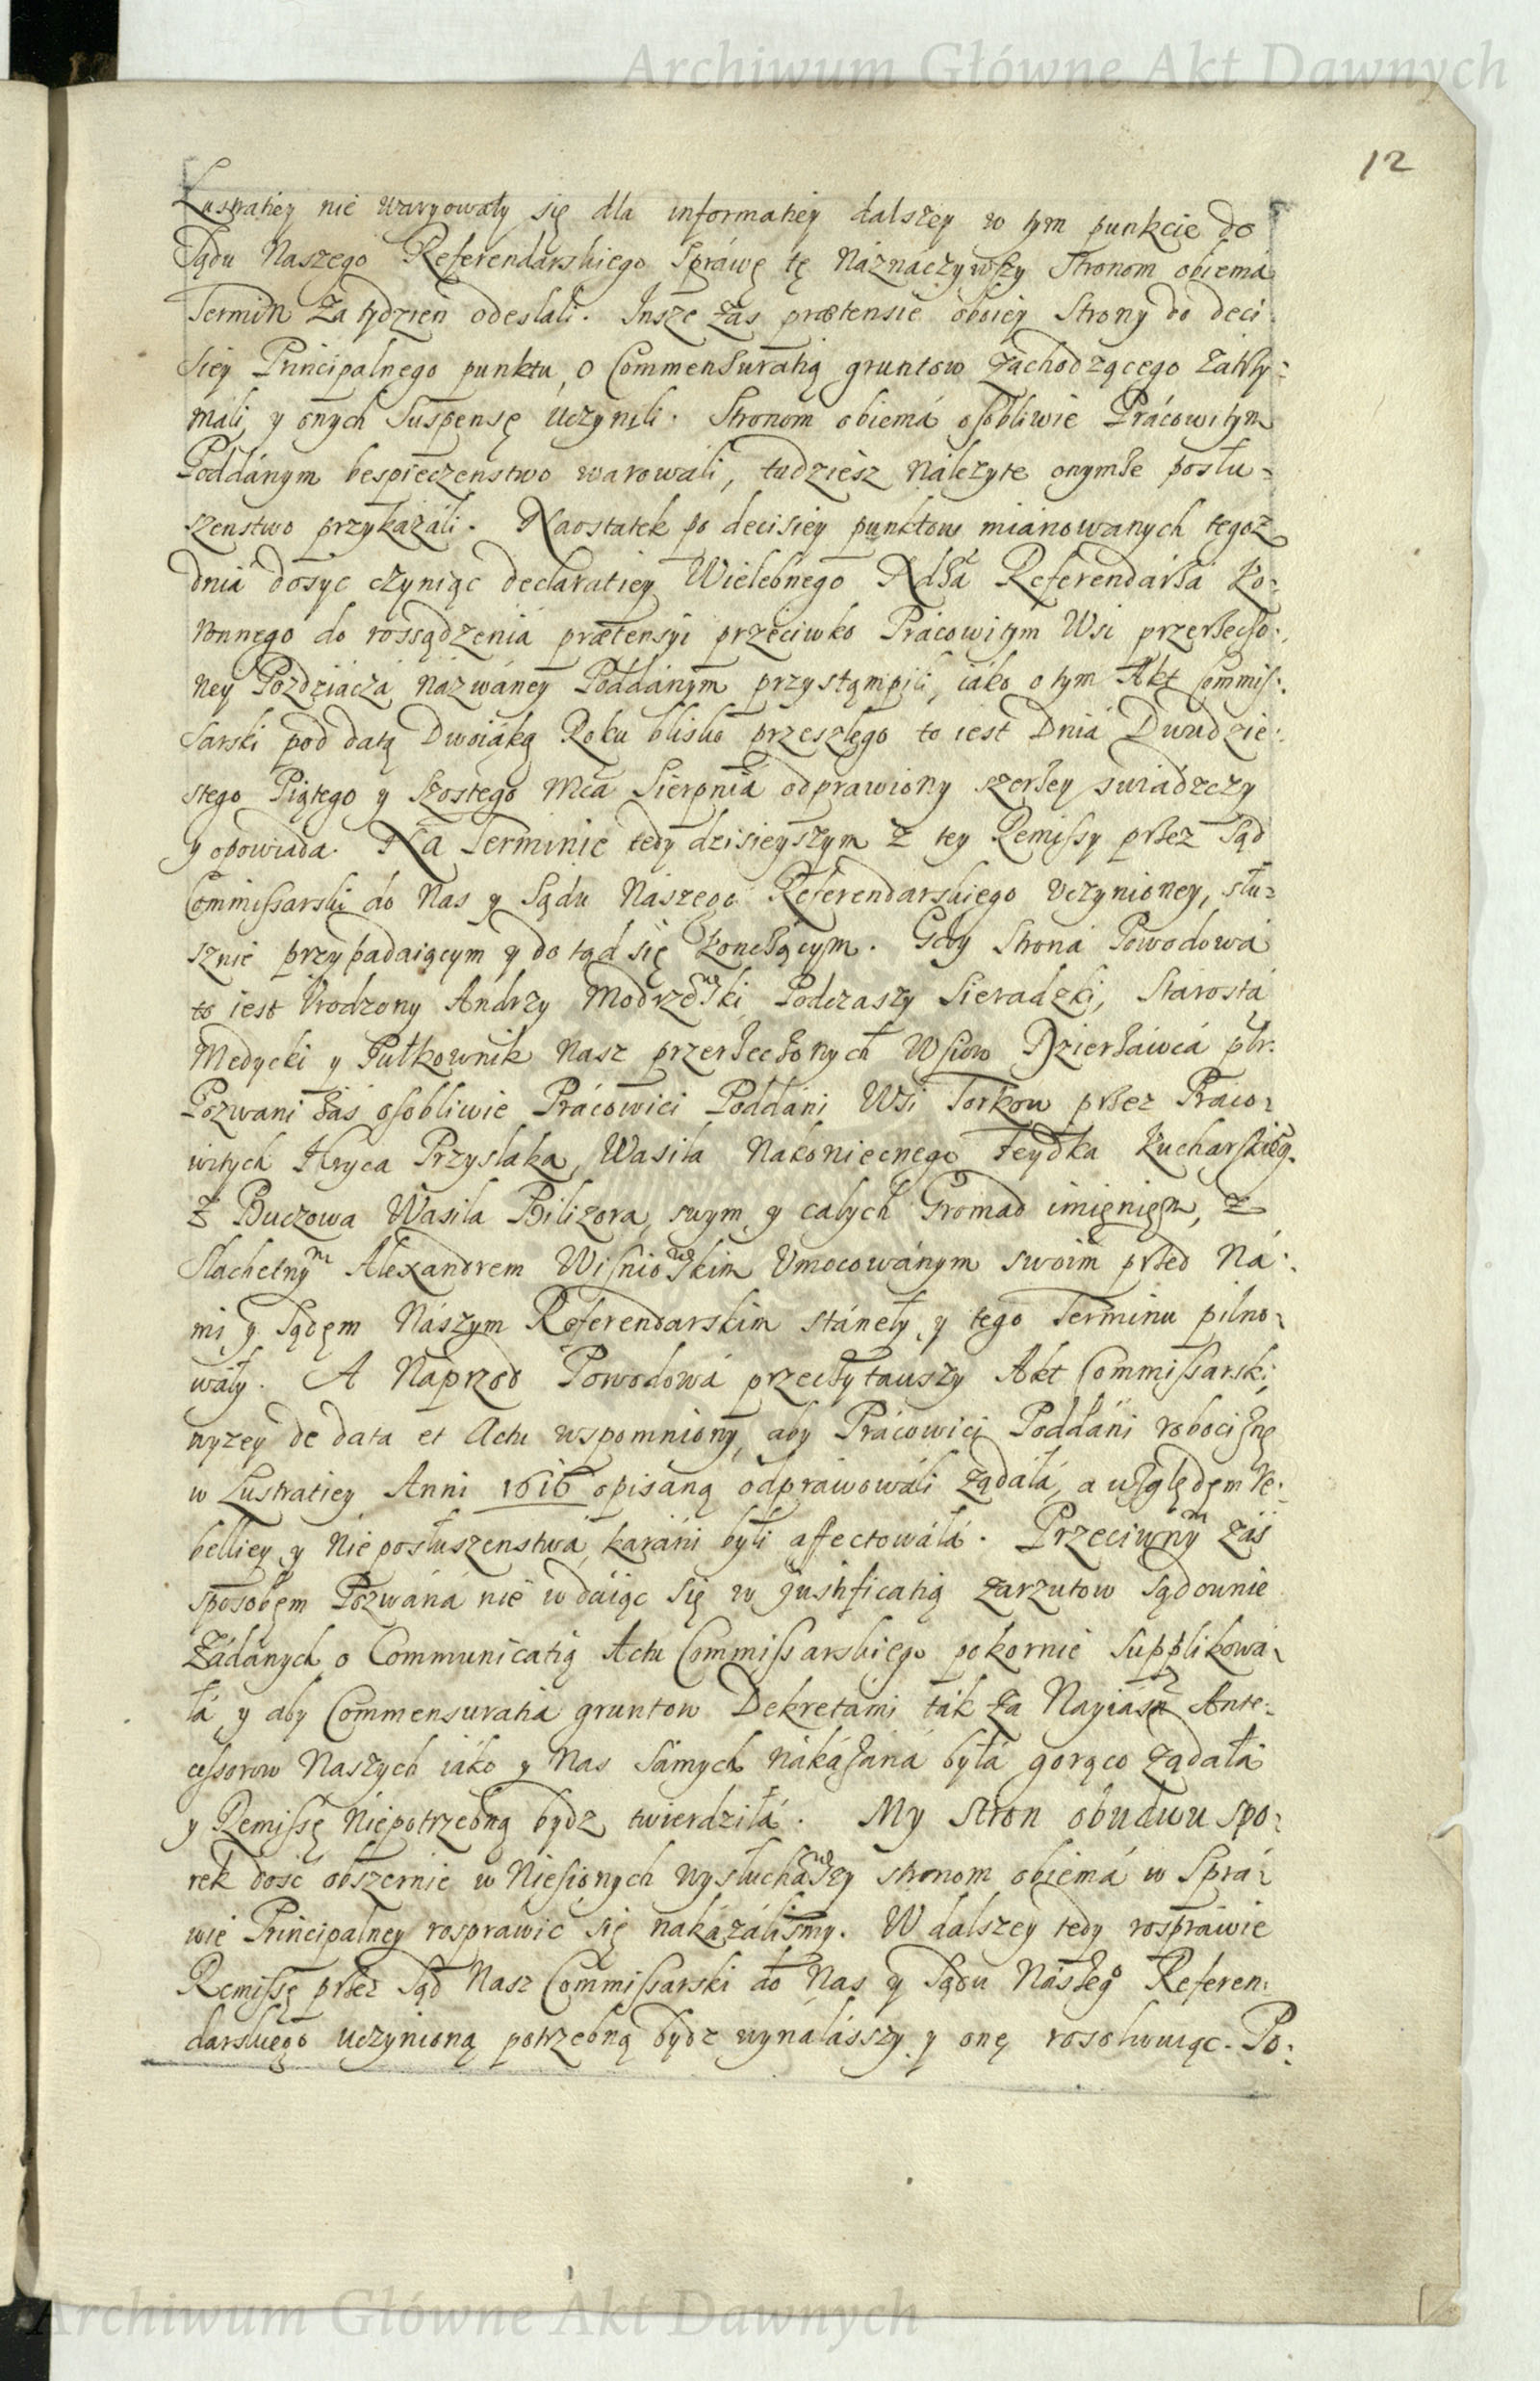 Archiwum Główne Akt Dawnych
12
Lustratiey nie waryowały się dla informatiey dalszey w tym punkcie do
Sądu Naszego Referendarskiego Sprawę tę Náznaczywszy Stronom obiemá
Termin Za tydzien odeslali. Insze zas prætensie oboiey Strony do deci
siey Principalnego punktu, o Commensuratią gruntow zachodzącego zátrzy:
máli, y onych Suspensę uczynili. Stronom obiemá osobliwie Prácowitym
Poddánym bespieczenstwo warowáli, tudziesz należyte onymże posłu=
szenstwo przykazáli. Naostatek po decisiey punktow mianowanych tegoż
dniá dosyc czyniąc declaratiey Wielebnego Xdzá Referendarza Ko:
ronnego do rossądzenia prætensyi przeciwko Pracowitym Wsi przerzeczo:
ney Pozdziácza názwáney Poddánym przystąmpili, iáko o tym Akt Commis:
sarski pod datą Dwoiáką Roku blisko przeszłego to iest Dniá Dwudzie:
stego Piątego y Szostego Mcá Sierpniá odprawiony szerzey swiádczy
y opowiada. Na Terminie tedy dzisieyszym z tey Remissy przez Sąd
Commissarski do Nas y Sądu Naszego Referendarskiego Uczynioney, słu=
sznie przypadaiącym y do tąd się konczącym. Gdy Stroná Powodowá
to iest Urodzony Andrzy Modrzewski Podczaszy Sieradzki, Starostá
Medycki y Pułkownik Nasz przerzeczonych Wsiow Dzierżáwcá ptr.
Pozwani záś osobliwie Prácowici Poddáni Wsi Torkow przez Praco:
witych Hryca Przyslaka, Wasila Nakoniecnego Feydka Kucharskiego.
Z Buczowa Wasila Bilizora, swym y całych Gromad imięnięm, z
Slachetnym Alexandrem Wisniowskim Umocowánym swoim przed Ná:
mi y Sądęm Nászym Referendarskim stánęły y tego Terminu pilno:
wáły. A Naprzod Powodowá przeczytawszy Akt Commissarski,
wyzey de data et Actu wspomniony, aby Prácowici Poddáni robociznę
w Lustratiey Anni 1616 opisaną odprawowáli żądáłá, a względęm Re:
belliey y nieposłuszenstwá karáni byli affectowáłá. Przeciwnym záś
sposobęm Pozwáná nie wdáiąc się w justificatią zarzutow sądownie
Zádánych o Communicatią Actu Commissarskiego pokornie supplikowá:
łá y aby Commensuratia gruntow Dekretámi ták za Nayiásn Ante:
cessorow Naszych iáko y Nas Sámych nákázáná byłá gorąco żądałá
y Remissę niepotrzebną bydz twierdziłá. My Stron obudwu spo:
rek dość obszernie wniesionych wysłuchawszy stronom obiemá w Sprá:
wie Principalney rosprawić się nakázálismy. W dalszey tedy rospráwie
Remissę przez Sąd Nasz Commissarski do Nas y Sądu Nászego Referen:
darskiego uczynioną potrzebną bydz wynalászszy y onę rosolwuiąc. Po:
Archiwum Główne Akt Dawnych